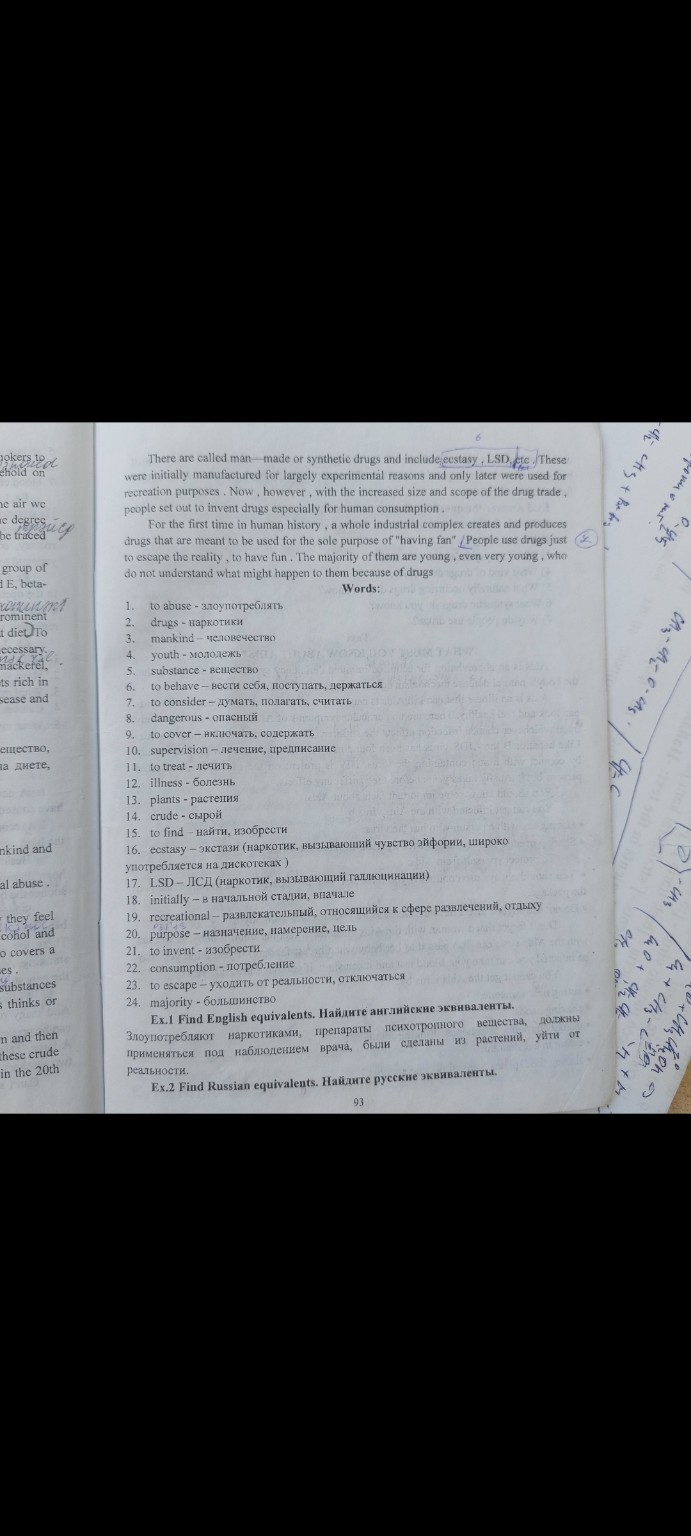 nokers to
ehold on
he air we
he degree
be traced
group of
d E, beta-
rominent
t diet. To
ecessary.
mackerel,
ts rich in
sease and
ещество,
на диете,
nkind and
al abuse .
they feel
cohol and
o covers a
es .
substances
s thinks or
n and then
these crude
in the 20th
6
There are called man—made or synthetic drugs and include ecstasy , LSD, etc . These
were initially manufactured for largely experimental reasons and only later were used for
recreation purposes . Now , however , with the increased size and scope of the drug trade ,
people set out to invent drugs especially for human consumption .
For the first time in human history , a whole industrial complex creates and produces
drugs that are meant to be used for the sole purpose of "having fan" People use drugs just
to escape the reality , to have fun . The majority of them are young , even very young , who
do not understand what might happen to them because of drugs
Words:
1. to abuse - злоупотреблять
2. drugs - наркотики
3. mankind – человечество
4. youth - молодежь
5. substance - вещество
6. to behave – вести себя, поступать, держаться
7. to consider – думать, полагать, считать
8. dangerous - опасный
9. to cover – включать, содержать
10. supervision – лечение, предписание
11. to treat - лечить
12. illness - болезнь
13. plants - растения
14. crude - сырой
15. to find – найти, изобрести
16. ecstasy – экстази (наркотик, вызывающий чувство эйфории, широко
употребляется на дискотеках )
17. LSD – ЛСД (наркотик, вызывающий галлюцинации)
18. initially – в начальной стадии, вначале
19. recreational – развлекательный, относящийся к сфере развлечений, отдыху
20. purpose – назначение, намерение, цель
21. to invent - изобрести
22. consumption - потребление
23. to escape – уходить от реальности, отключаться
24. majority - большинство
Ex.1 Find English equivalents. Найдите английские эквиваленты.
Злоупотребляют наркотиками, препараты психотропного вещества, должны
применяться под наблюдением врача, были сделаны из растений, уйти от
реальности.
Ex.2 Find Russian equivalents. Найдите русские эквиваленты.
93